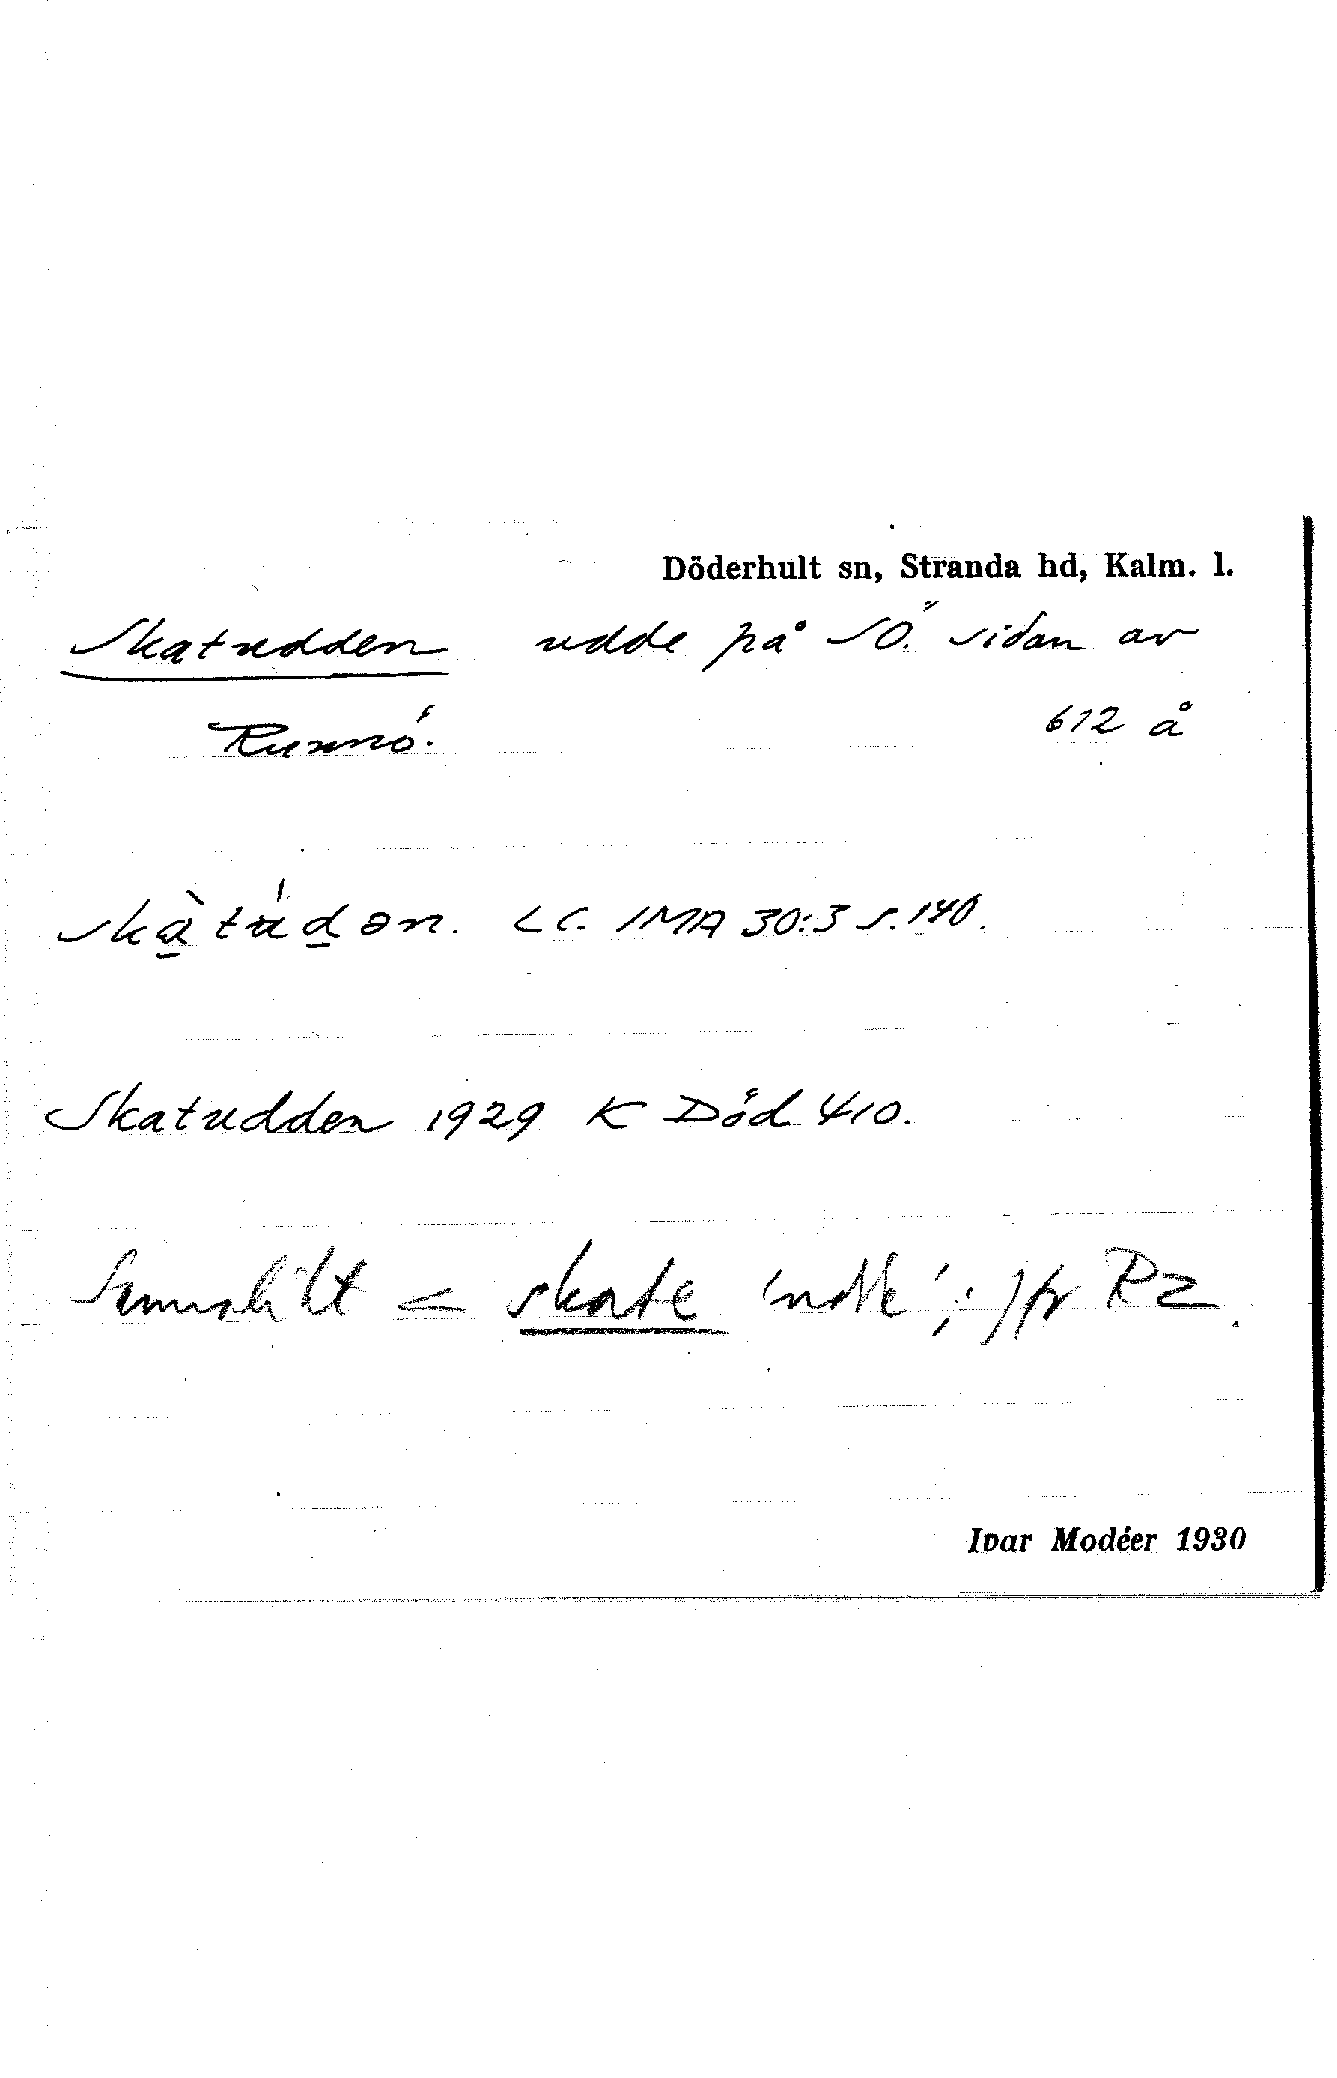 Döderhult sn, Stranda hd, Kalm. l.
Skatudden udde på SÖ. sidan av
Runnö. 612 å
skàtúdən. LC. IMA 30:3 s. 140.
Skatudden 1929 K Död 410.
Sannolikt < skate 'udde'; jfr Rz
Ivar Modéer 1930